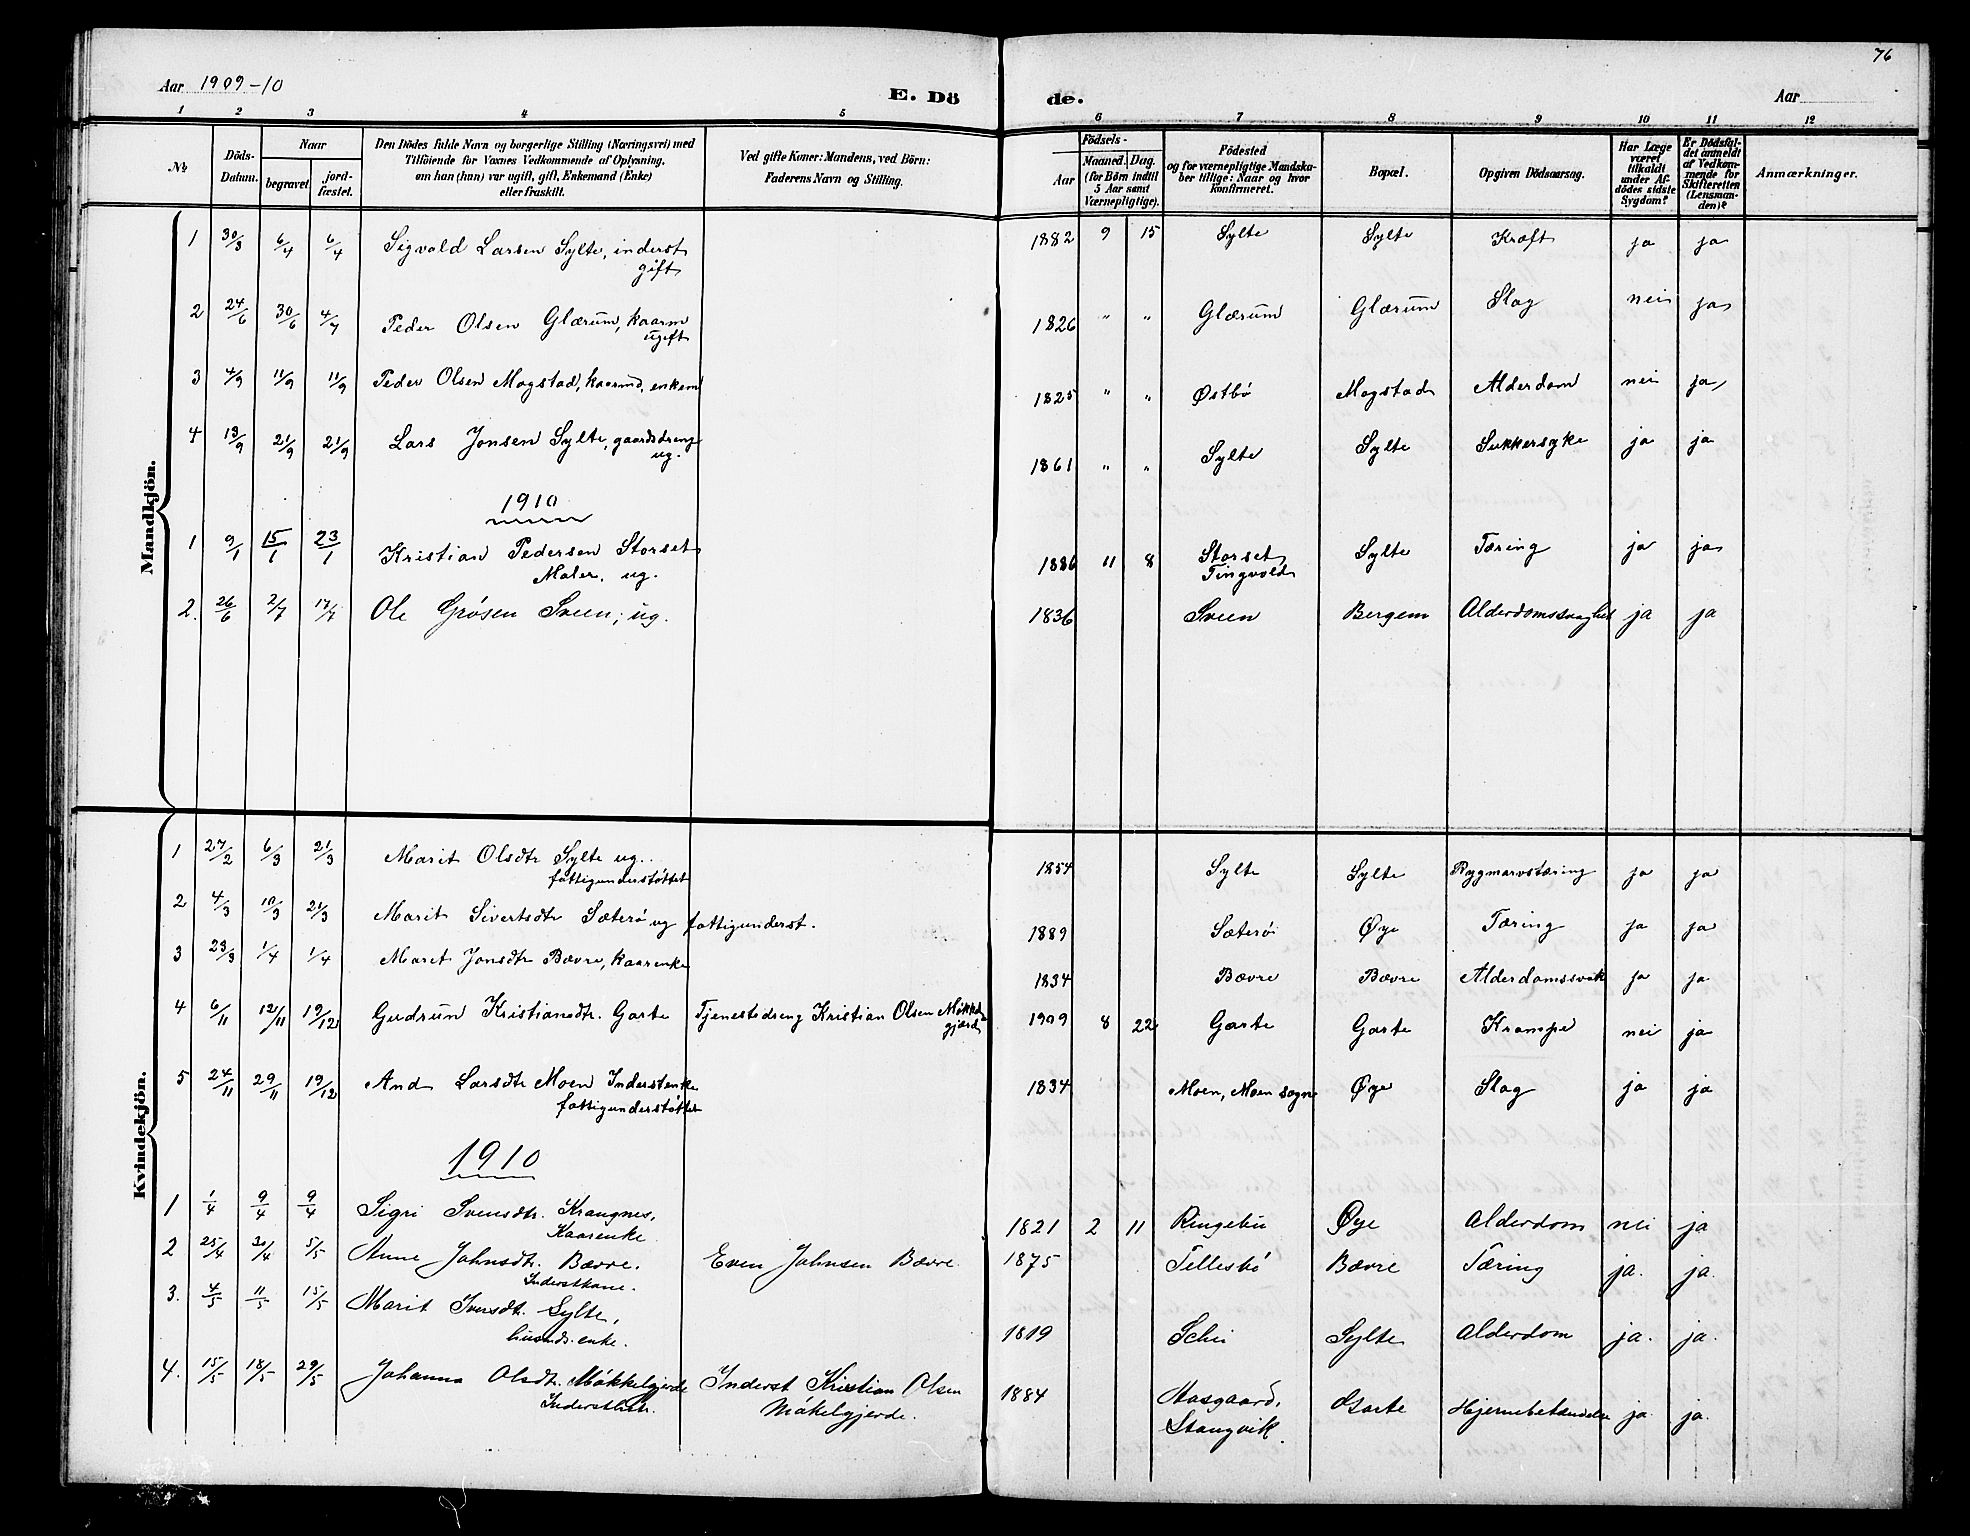 76
Aar 1909-10
E. Dö
de.
Aar
1 2 3 4 5 6 7 8 9 10 11 12
No
Döds-Datum.
Naar
begravet.
jord-fæstet.
Den Dödes fulde Navn og borgerlige Stilling (Næringsvei) med
Tilföiende for Voxnes Vedkommende af Oplysning,
om han (hun) var ugift, gift, Enkemand (Enke)
eller fraskilt.
Ved gifte Koner: Mandens, ved Börn:
Faderens Navn og Stilling.
Födsels-
Aar
Maaned. Dag.
(for Börn indtil
5 Aar samt
Værnepligtige).
Födested
og for værnepligtige Mandska-
ber tillige: Naar og hvor
konfirmeret.
Bopæl.
Opgiven Dödsaarsag.
Har Læge
været
tilkaldt
under Af-
dödes sidste
Sygdom?
Er Dödsfal-
det anmeldt
af Vedkom-
mende for
Skifteretten
(Lensman-
den)?
Anmærkninger.
Mandkjön.
1 30/3 6/4 6/4 Sigvald Larsen Sylte, inderst 1882 9 15 Sylte Sylte Kræft ja ja
gift
2 24/6 30/6 4/7 Peder Olsen Glærum, kaarm 1826 " " Glærum Glærum Slag nei ja
ugift
3 4/9 11/9 11/9 Peder Olsen Mogstad, kaarmd, enkem 1825 " " Østbö Mogstad Alderdom nei ja
4 13/9 21/9 21/9 Lars Jonsen Sylte, gaardsdreng 1861 " " Sylte Sylte Sukkersyke ja ja
ug.
1910
1 9/1 15/1 23/1 Kristian Pedersen Storset 1886 11 8 Storset Sylte Tæring ja ja
Maler, ug. Tingvold
2. 26/6 2/7 17/7 Ole Grösen Sveen, ug. 1836 Sveen Bergem Alderdomssvaghet ja ja
Kvindekjön.
1 27/2 6/3 21/3 Marit Olsdtr Sylte ug. 1854 Sylte Sylte Rygmarvstæring ja ja
fattigunderstøttet
2 4/3 10/3 21/3 Marit Sivertsdtr Sæterö ug fattigunderst. 1889 Sæterö Øye Tæring ja ja
3 23/3 1/4 1/4 Marit Jonsdtr Bævre, kaarenke 1834 Bævre Bævre Alderdomssvak ja ja
4 6/11 12/11 19/12 Gudrun Kristiansdtr. Garte Tjenestsdreng Kristian Olsen Møkkel- 1909 8 22 Garte Garte Krampe nei ja
gjerd
5 24/11 29/11 19/12 And Larsdtr Moen Inderstenke 1834 Moen, Moen sogn Øye Slag ja ja
fattigunderstøttet
1910
1 1/4 9/4 9/4 Sigri Svensdtr. Krangnes, 1821 2 11 Ringebu Øye Alderdom nei ja
Kaarenke
2 25/4 30/4 5/5 Anne Johnsdtr. Bævre. Even Johnsen Bævre. 1875 Tellesbö Bævre Tæring ja. ja.
Inderstkone.
3. 4/5 11/5 15/5 Marit Iversdtr. Sylte, 1819 Schei Sylte Alderdom ja. ja.
husmds. enke.
4. 15/5 18/5 29/5 Johanna Olsdtr. Møkkelgjerde Inderst Kristian Olsen 1884 Aasgaard, Garte Hjernebetændelse ja ja.
Møkelgjerde. Stangvik.